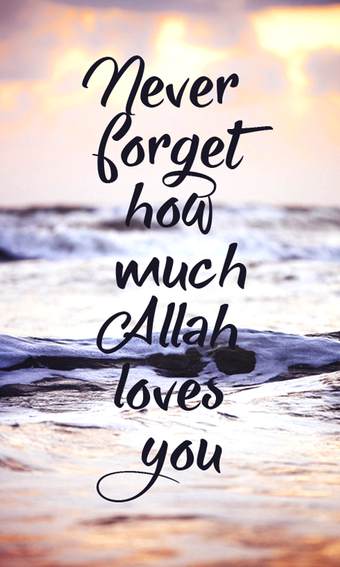 Never
forget
how
much
Allah
loves
you